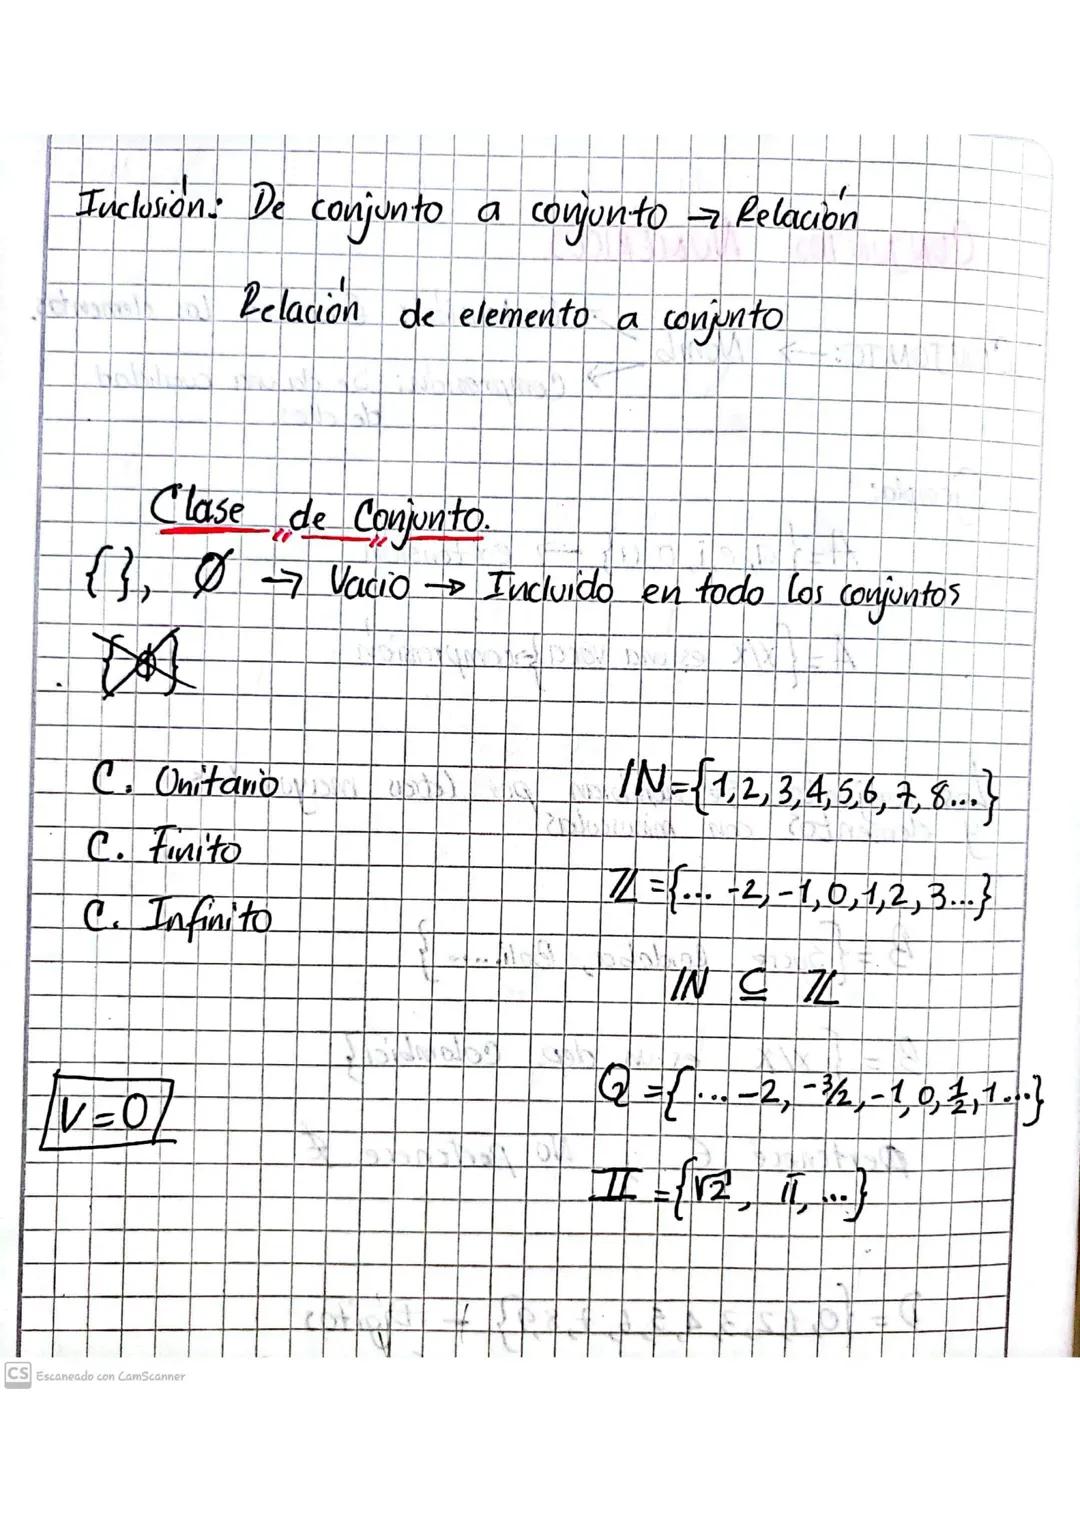 Inclusión: De conjunto a conjunto → Relación
Relación de elemento a conjunto
Clase de Conjunto.
{ }, Ø → Vacio → Incluido en todo los conjuntos
C. Unitario
C. Finito
C. Infinito
IN={1,2,3,4,5,6,7,8...}
ℤ={... -2,-1,0,1,2,3...}
IN ⊆ ℤ
Q={...-2,-3/2,-1,0,1/2,1...}
V=0
II={√2, π, ...}
CS Escaneado con CamScanner